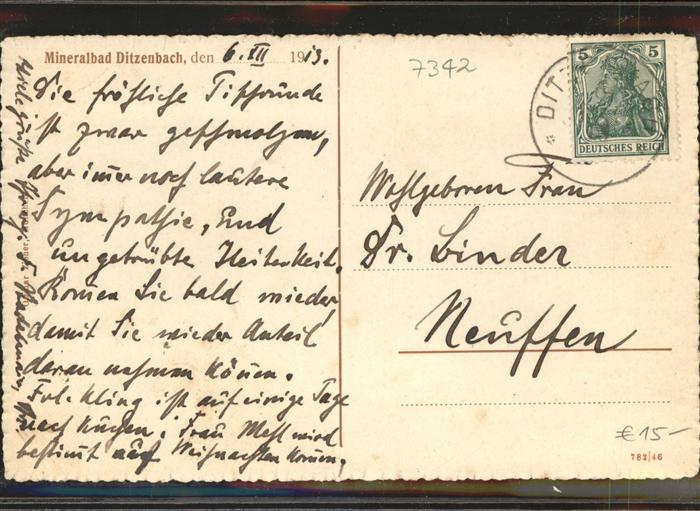 Mineralbad Ditzenbach, den 6. XII 1913.
Die fröhliche Tischrunde
ist zwar geschmolzen,
aber immer noch lautere
Sympathie, und
ungetrübte Heiterkeit.
Kommen Sie bald wieder,
damit Sie wieder Anteil
daran nehmen können.
Frl. Kling ist auf einige Tage
nach ; Frau Mehl wird
bestimmt auf Weihnachten kommen,
Viele Grüße
7342
DITZ
5 5
DEUTSCHES REICH
Wohlgeboren Frau
Dr. Binder
Neuffen
€ 15-
782/46